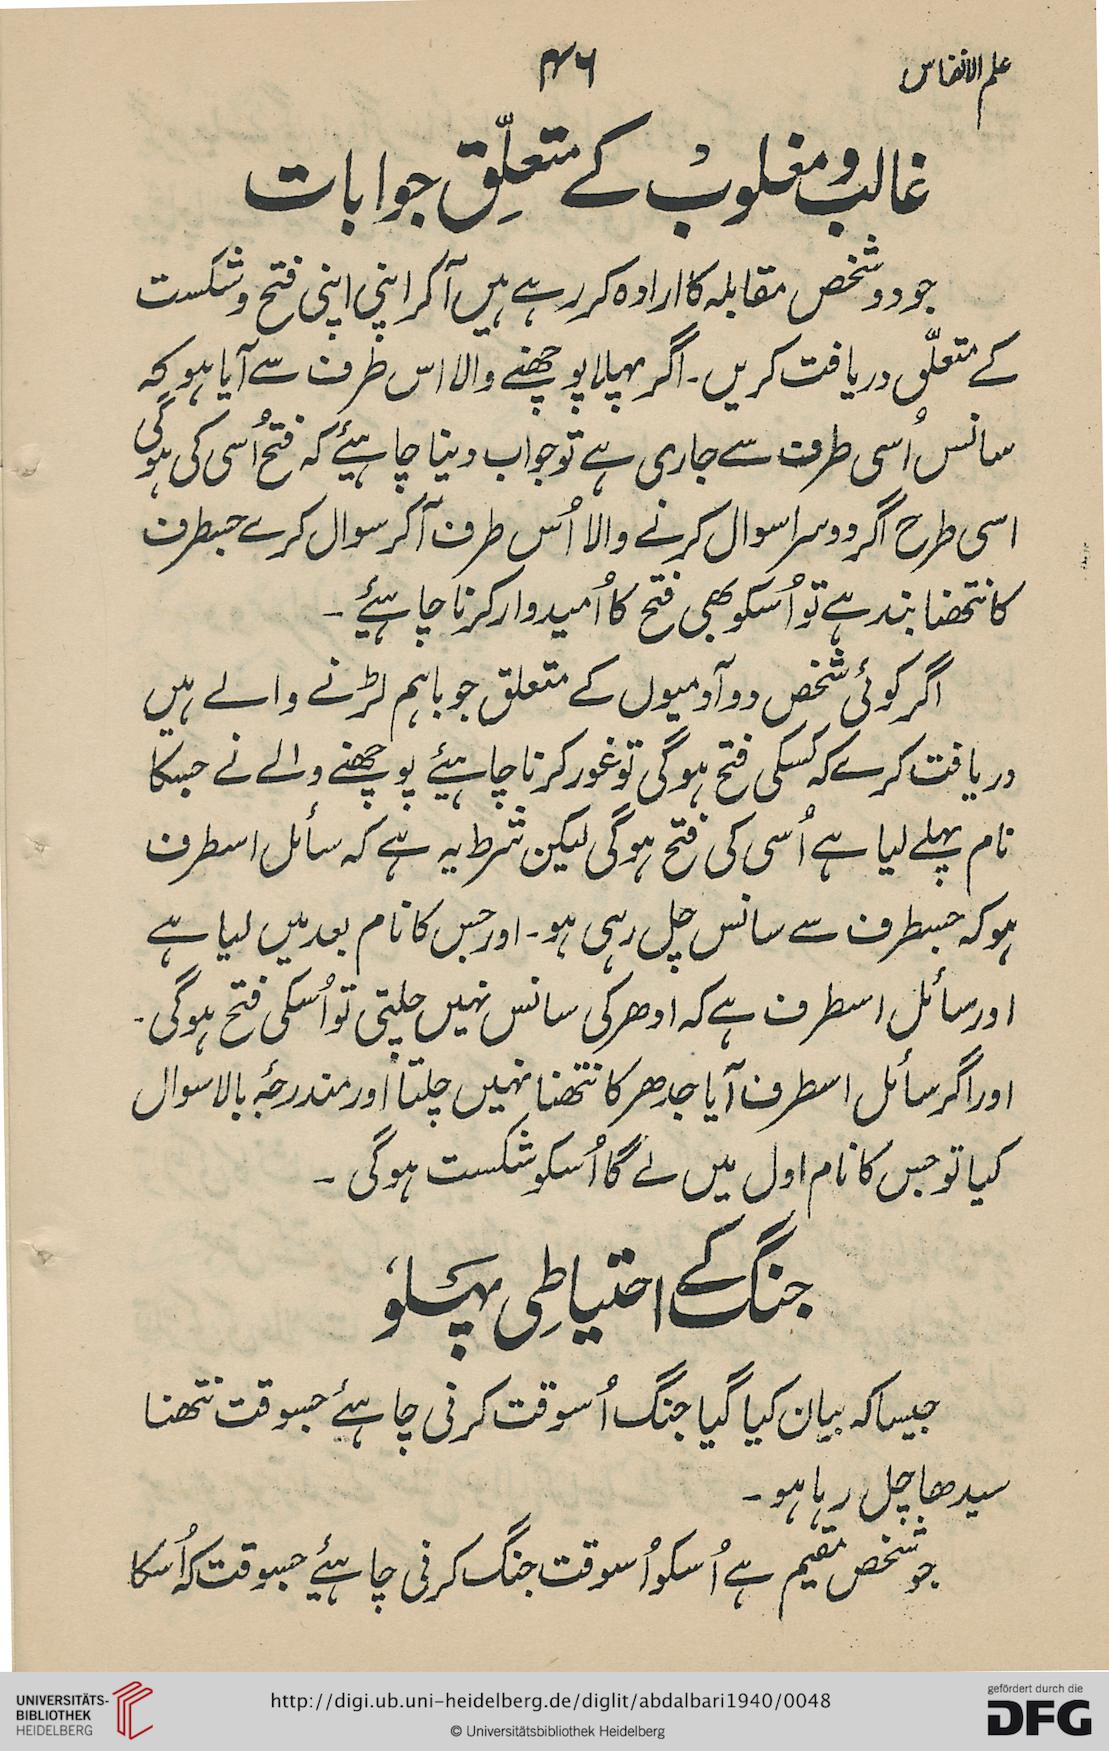 علم الانفاس
۴۶
غالب و مغلوب کے متعلّق جوابات
جو دو شخص مقابلہ کا ارادہ کر رہے ہیں آ کر اپنی اپنی فتح و شکست
کے متعلّق دریافت کریں۔ اگر پہلا پوچھنے والا اس طرف سے آیا ہو کہ
سانس اُسی طرف سے جاری ہے تو جواب دینا چاہیئے کہ فتح اُسی کی ہوگی
اسی طرح اگر دوسرا سوال کرنے والا اُس طرف آ کر سوال کرے جسطرف
کا نتھنا بند ہے تو اُسکو بھی فتح کا اُمیدوار کرنا چاہیئے ۔
اگر کوئی شخص دو آدمیوں کے متعلق جو باہم لڑنے والے ہیں
دریافت کرے کہ کسکی فتح ہوگی تو غور کرنا چاہیئے پوچھنے والے نے جسکا
نام پہلے لیا ہے اُسی کی فتح ہوگی لیکن شرط یہ ہے کہ سائل اسطرف
ہو کہ جسطرف سے سانس چل رہی ہو۔ اور جس کا نام بعد میں لیا ہے
اور سائل اسطرف ہے کہ ادھر کی سانس نہیں چلتی تو اُسکی فتح ہوگی۔
اور اگر سائل اسطرف آیا جدھر کا نتھنا نہیں چلتا اور مندرجۂ بالا سوال
کیا تو جس کا نام اول میں لے گا اُسکو شکست ہوگی ۔
جنگ کے احتیاطی پہلو
جیسا کہ بیان کیا گیا جنگ اُسوقت کرنی چاہیئے جسوقت نتھنا
سیدھا چل رہا ہو۔
جو شخص مقیم ہے اُسکو اُسوقت جنگ کرنی چاہیئے جسوقت کہ اُسکا
UNIVERSITÄTS-
BIBLIOTHEK
HEIDELBERG
http://digi.ub.uni-heidelberg.de/diglit/abdalbari1940/0048
© Universitätsbibliothek Heidelberg
gefördert durch die
DFG